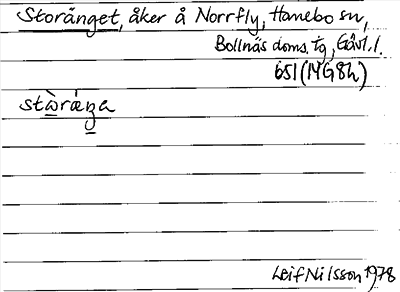 Storänget, åker å Norrfly, Hanebo sn,
Bollnäs doms. tg, Gävl. l.
651 (14G8h)
stὼráŋa
Leif Nilsson 1978